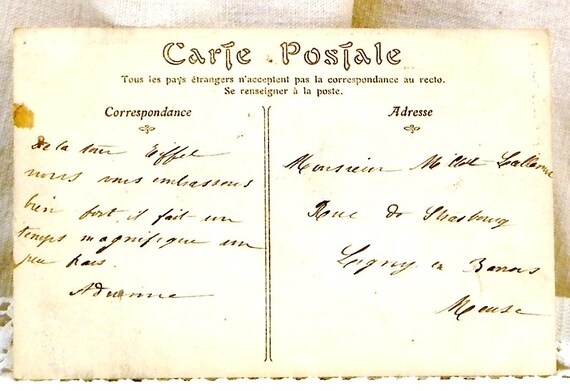 Carte Postale
Tous les pays étrangers n'acceptent pas la correspondance au recto.
Se renseigner à la poste.
Correspondance
De la tour Eiffel
nous vous embrassons
bien fort, il fait un
temps magnifique un
peu frais.
Adrienne
Adresse
Monsieur
Rue de Strasbourg
Ligny en Barrois
Meuse